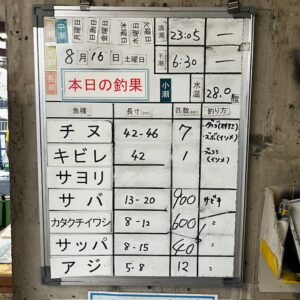 中潮
月曜日
火曜日
水曜日
木曜日
金曜日
満潮 23:05 —
8月16日 土曜日
干潮 6:30 —
長潮
本日の釣果
小潮
水温 28.0度
魚種 長寸(cm) 匹数(匹) 釣り方
チヌ 42-46 7
キビレ 42 1 (イソメ)
サヨリ
サバ 13-20 900 サビキ
カタクチイワシ 8-12 600 〃
サッパ 8-15 40 〃
アジ 5-8 12 〃